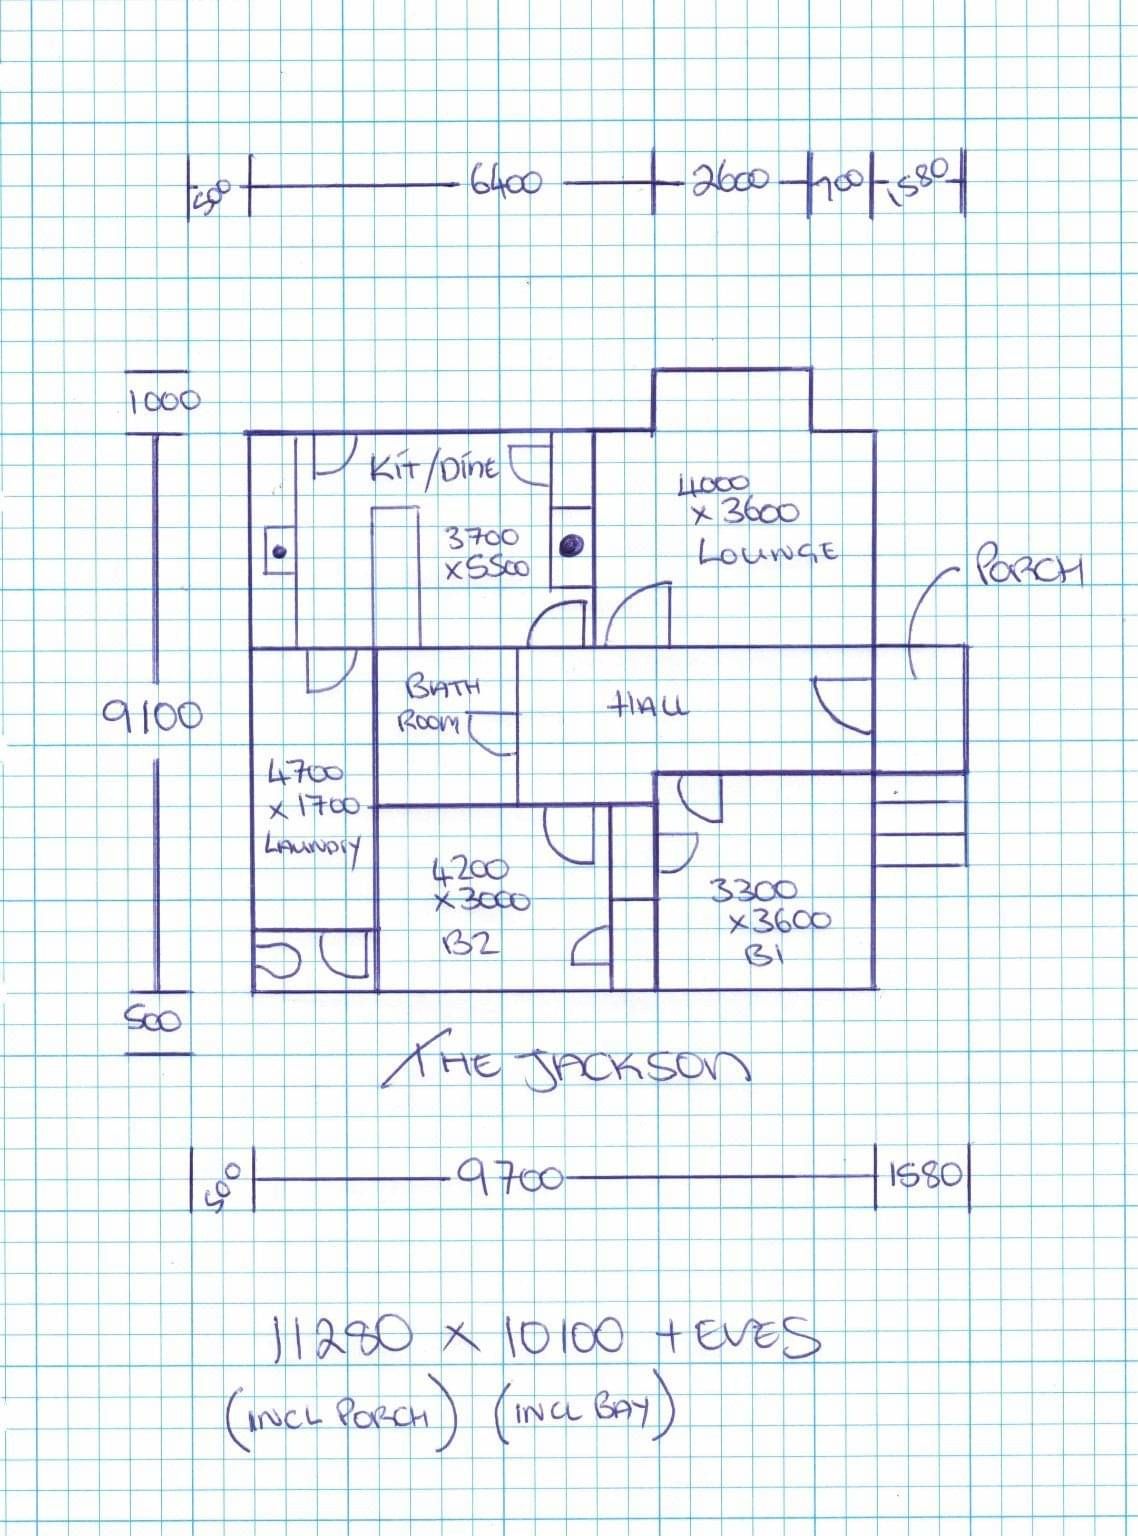 500 6400 2600 700 1580
1000
Kit/Dine
3700
x5500
4000
x 3600
LOUNGE
PORCH
9100
BATH
ROOM
HALL
4700
x 1700
LAUNDRY
4200
x3000
B2
3300
x3600
B1
500
THE JACKSON
500 9700 1580
11280 x 10100 + EVES
(INCL PORCH) (INCL BAY)